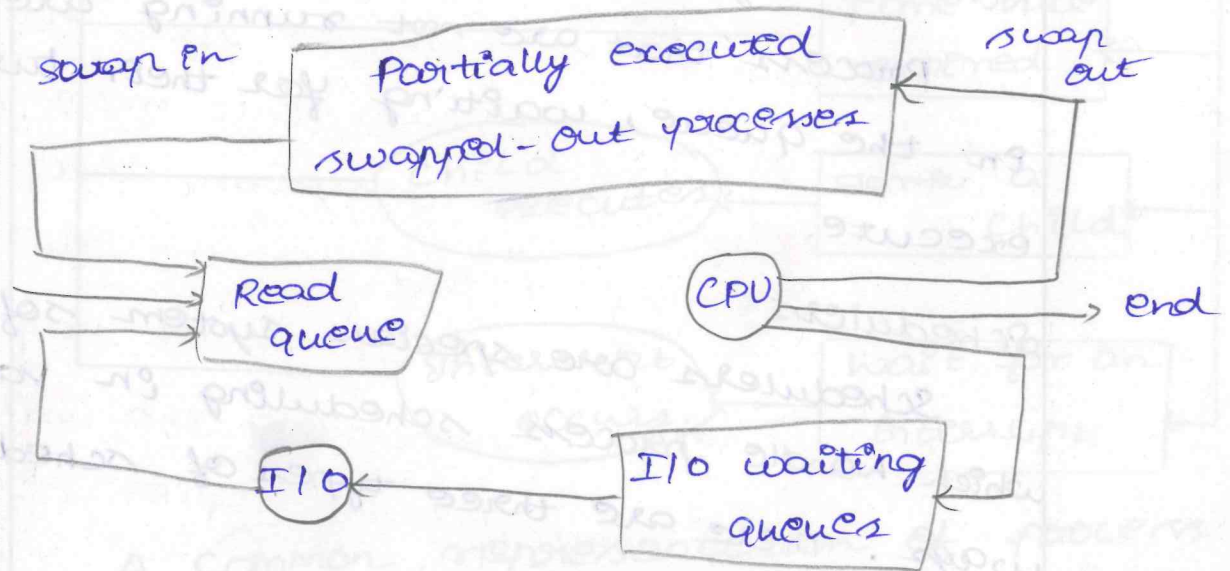 swap in
Partially executed
swapped-out processes
swap
out
Read
queue
CPU
end
I/O
I/O waiting
queues